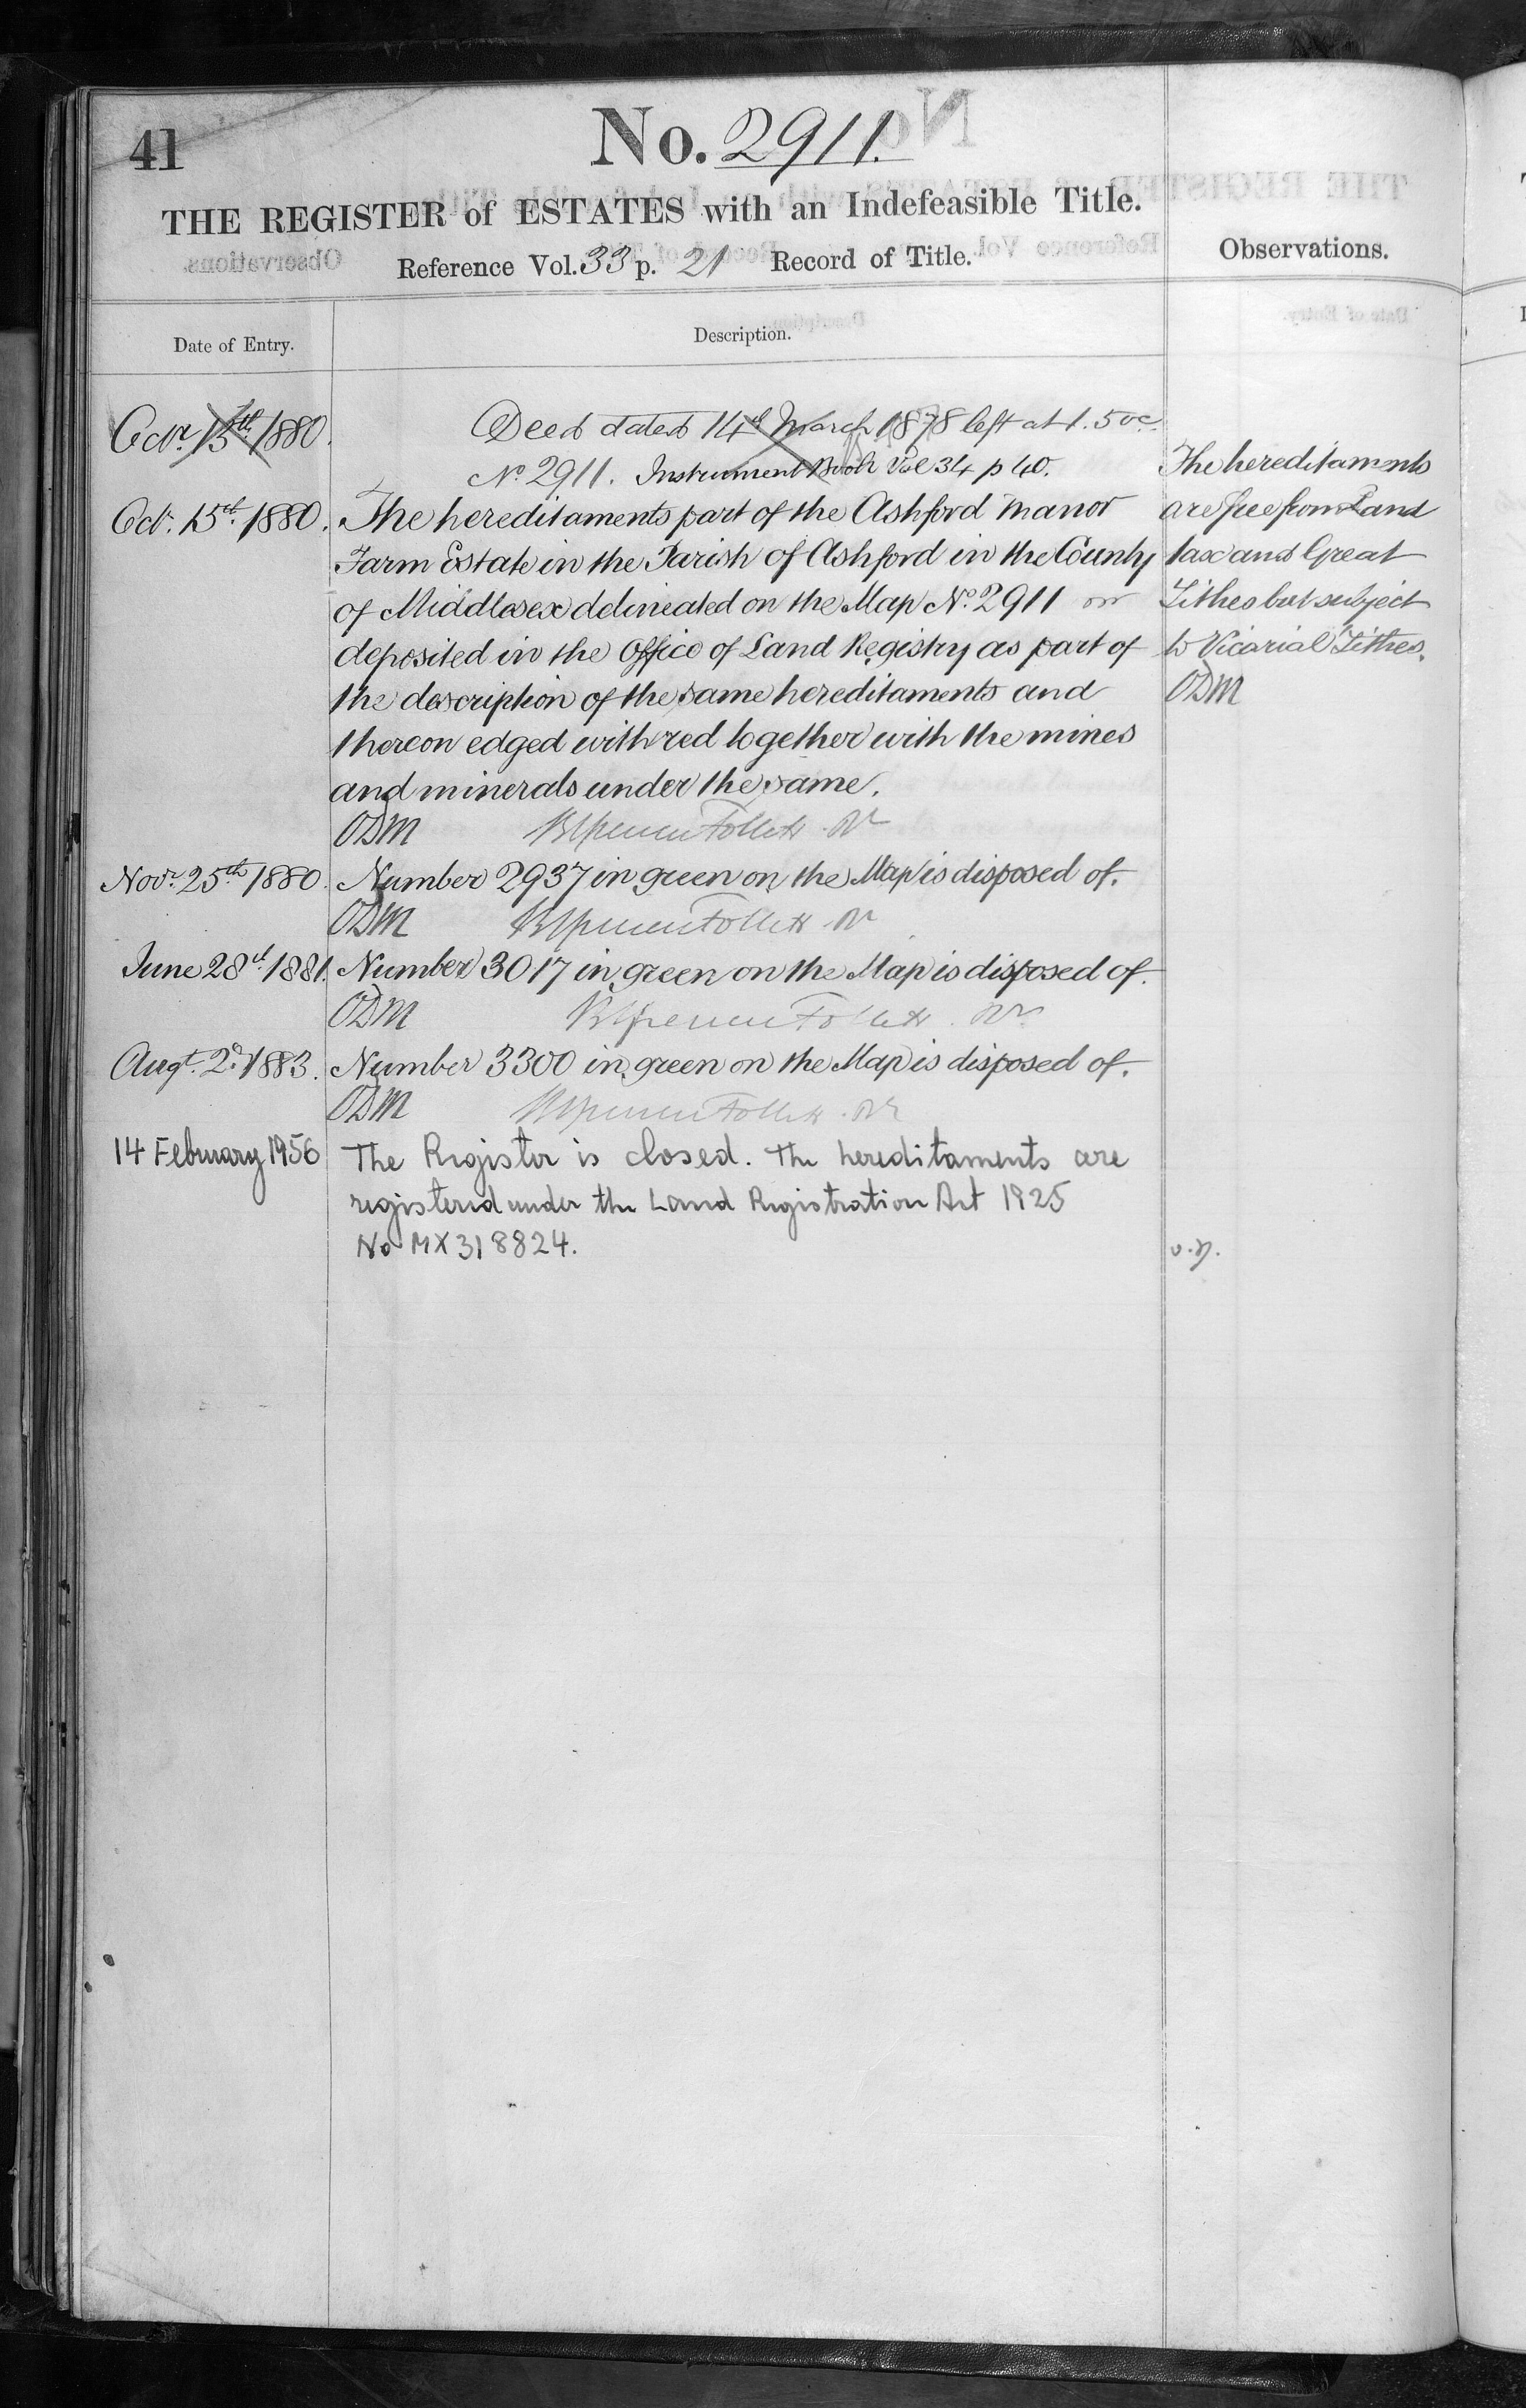 41
No. 2911.
THE REGISTER of ESTATES with an Indefeasible Title.
Reference Vol. 33 p. 21 Record of Title.
Observations.
Date of Entry.
Description.
Octr. 15th 1880.
Deed dated 14th March 1878 left at 1.50
No. 2911. Instrument Book Vol 34 p 40.
Oct. 15th 1880.
The hereditaments part of the Ashford Manor
Farm Estate in the Parish of Ashford in the County
of Middlesex delineated on the Map No. 2911 on
deposited in the Office of Land Registry as part of
the description of the same hereditaments and
thereon edged with red together with the mines
and minerals under the same.
ODM
The hereditaments
are free from Land
tax and Great
Tithes but subject
to Vicarial Tithes.
ODM
Novr. 25th 1880.
Number 2937 in green on the Map is disposed of.
ODM
June 28th 1881.
Number 3017 in green on the Map is disposed of.
ODM
Augt. 2d 1883.
Number 3300 in green on the Map is disposed of.
ODM
14 February 1956
The Register is closed. The hereditaments are
registered under the Land Registration Act 1925
No MX318824.